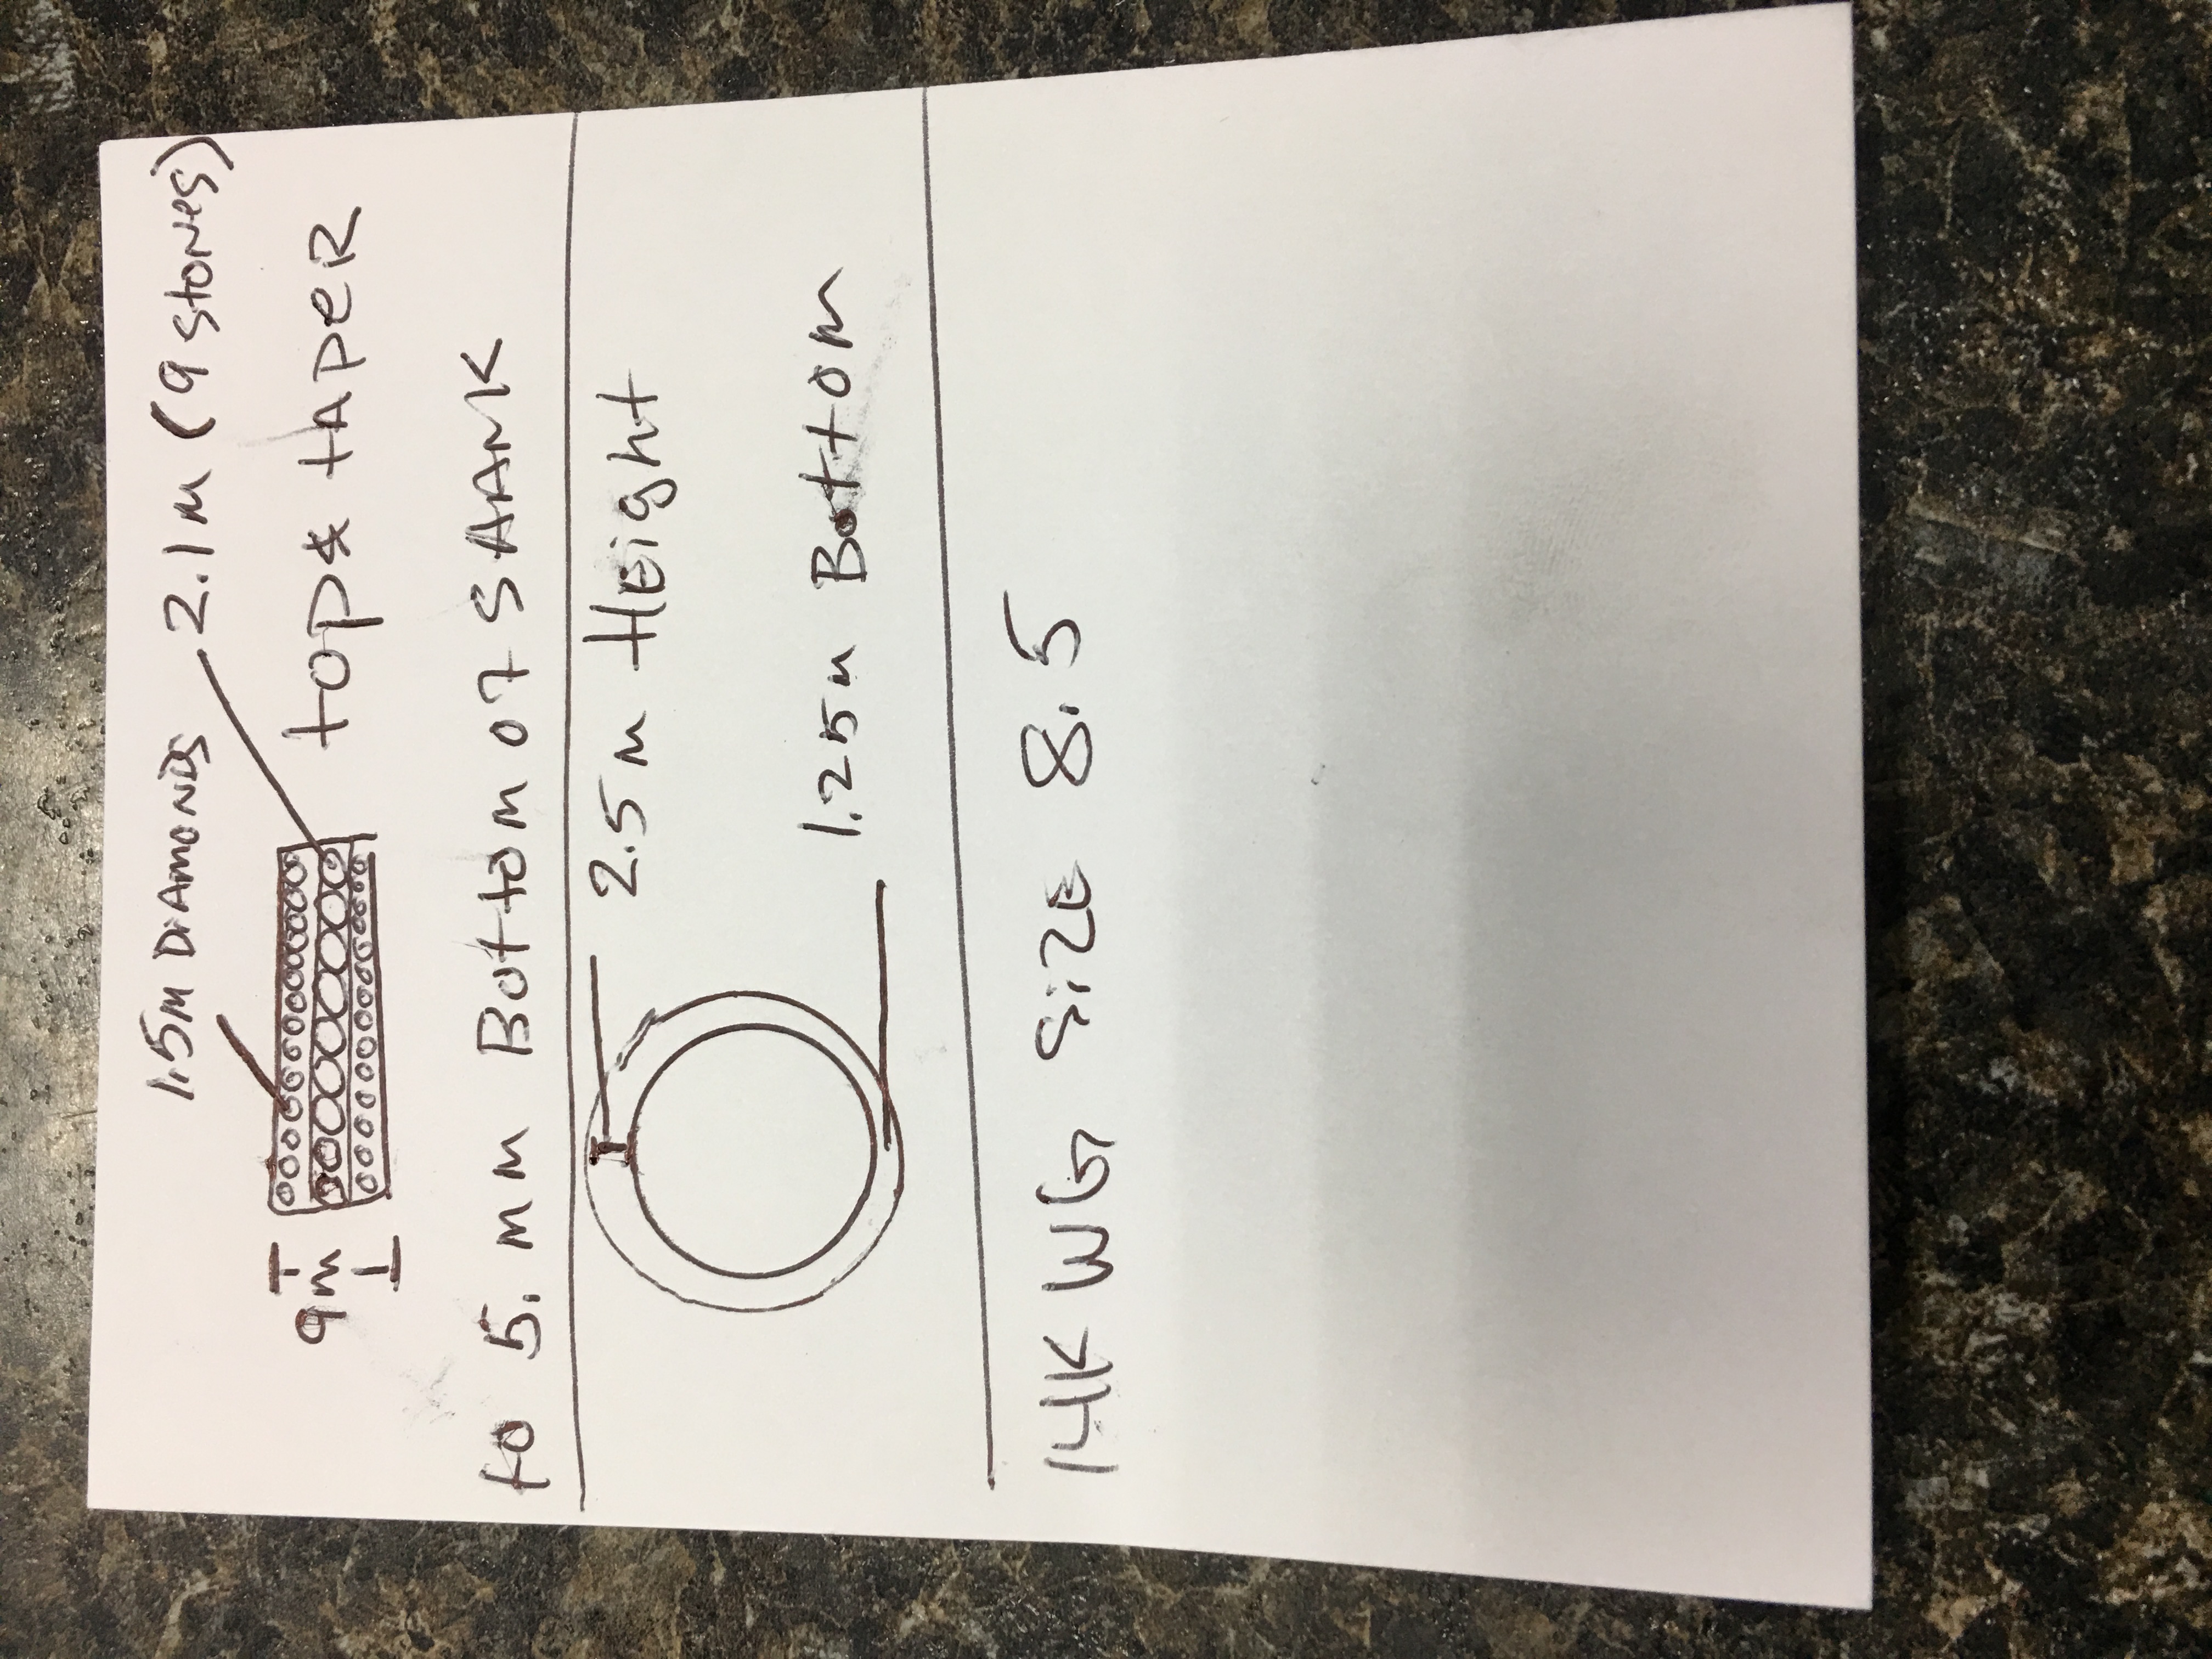 1.5M DiAMONDS 2.1M (9 stones)
9m top & tAPER
to 5. mm Bottom of SHANK
2.5m HEight
1.25m Bottom
14K WG SiZE 8.5